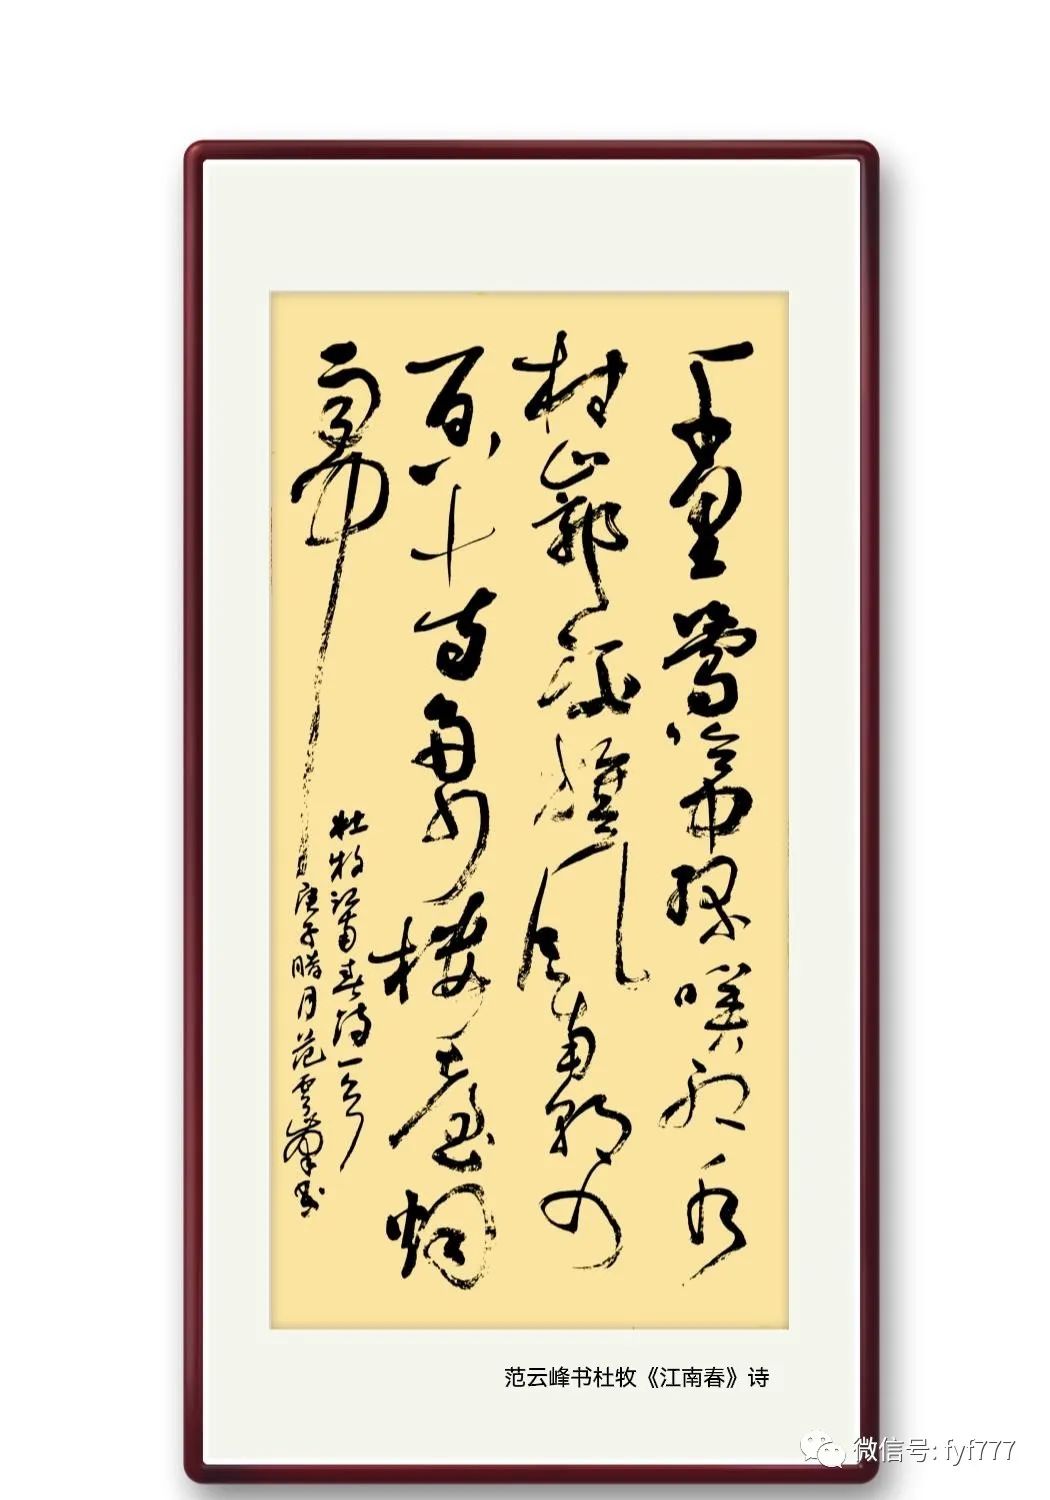 千里鶯啼綠映紅水
村山郭酒旗風南朝四
百八十寺多少樓臺烟
雨中
杜牧江南春诗一首
庚子腊月范雲峯书
范云峰书杜牧《江南春》诗
微信号: fyf777